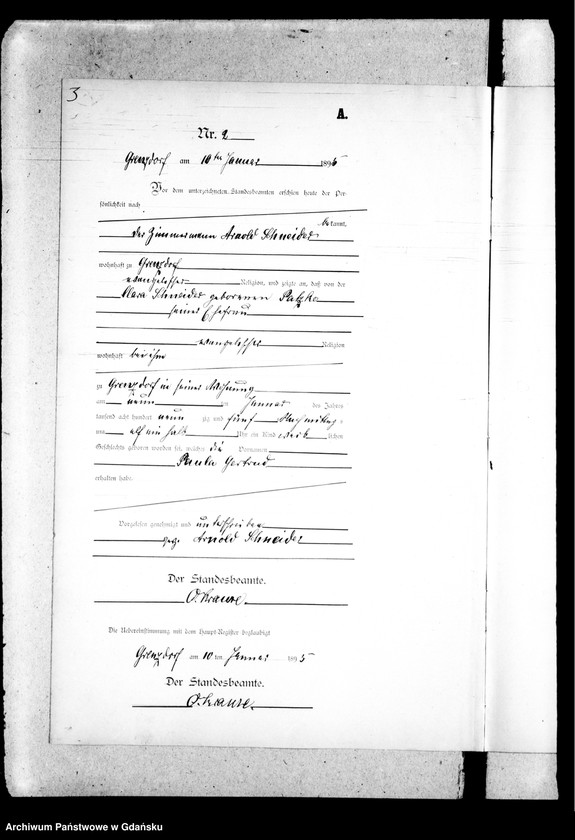 3
A.
Nr. 2
Grenzdorf am 10ten Januar 1895
Vor dem unterzeichneten Standesbeamten erschien heute der Per-
sönlichkeit nach
bekannt,
der Zimmermann Arnold Schneider
wohnhaft zu Grenzdorf
evangelischer Religion, und zeigte an, daß von der
Clara Schneider geborenen
seiner Ehefrau
evangelischer Religion
wohnhaft bei ihm
zu Grenzdorf in seiner Wohnung
am neun ten Januar des Jahres
tausend acht hundert neun zig und fünf Nachmittags
um elf ein halb Uhr ein Kind weib lichen
Geschlechts geboren worden sei, welches die Vornamen
Paula Gertrud
erhalten habe.
Vorgelesen, genehmigt und unterschrieben
gez. Arnold Schneider
Der Standesbeamte.
O. Krause.
Die Uebereinstimmung mit dem Haupt-Register beglaubigt
Grenzdorf am 10 ten Januar 1895
Der Standesbeamte.
O. Krause.
Archiwum Państwowe w Gdańsku